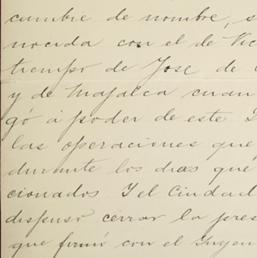 cumbre de nombre, s
nocida con el de Vic
tiempo de Jose de
y de Majalca cuan
gó á poder de este
las operaciones que
durante los dias que
cionados Y el Ciudad
dispuso cerrar la pres
que firmó con el Ingen